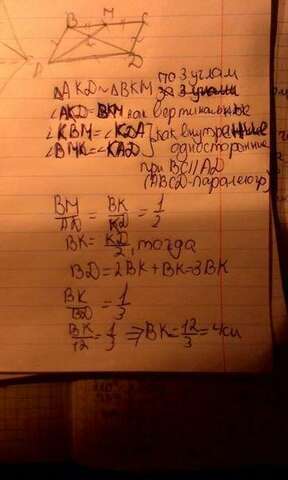 B M C
K
A D
ΔAKD~ΔBKM по 3 углам
∠AKD=BKM как вертикальные
∠KBM=∠KDA } как внутренние
∠BMK=∠KAD } односторонние
при BC||AD
(ABCD-параллелогр)
BM/AD = BK/KD = 1/2
BK = KD/2, тогда
BD=2BK+BK=3BK
BK/BD = 1/3
BK/12 = 1/3 ⇒ BK = 12/3 = 4см